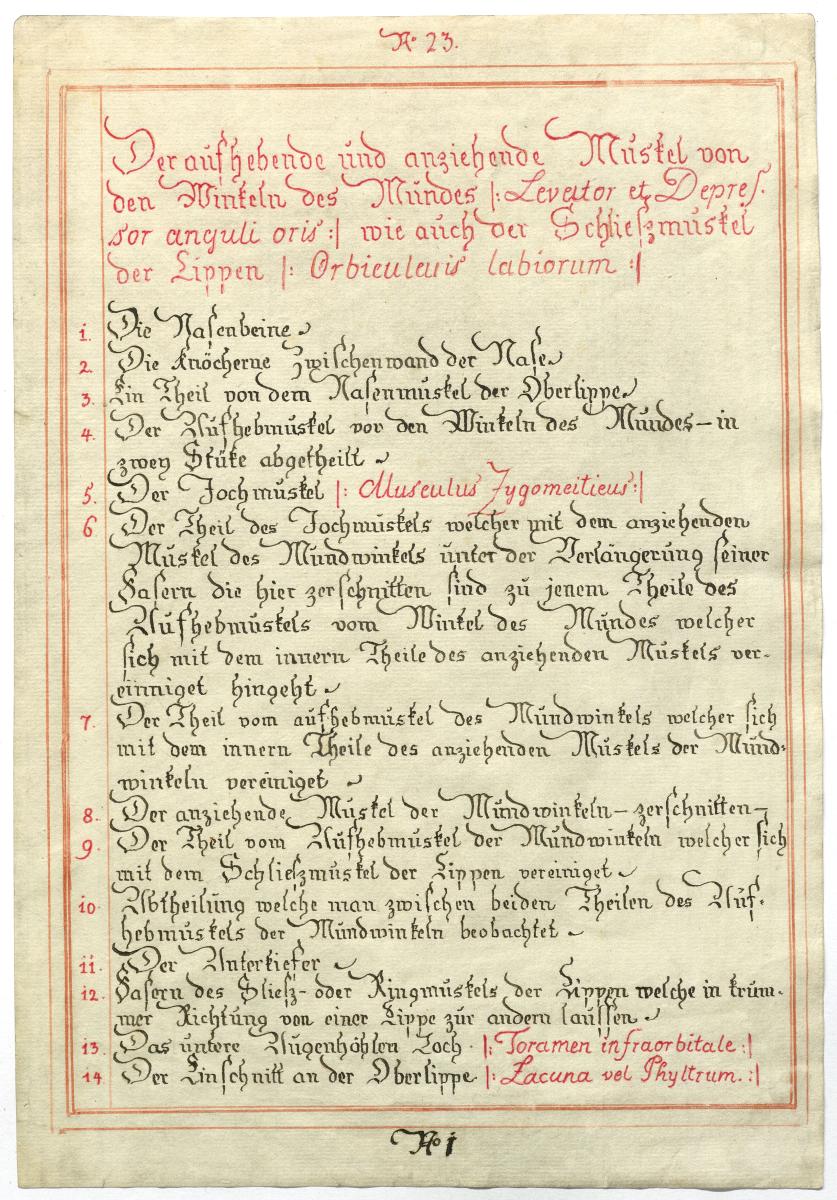 No 23.
Der aufhebende und anziehende Muskel von
den Winkeln des Mundes |: Levator et Depres-
sor anguli oris :| wie auch der Schlieszmuskel
der Lippen |: Orbicularis labiorum :|
1. Die Nasenbeine
2. Die knöcherne Zwischenwand der Nase
3. Ein Theil von dem Nasenmuskel der Oberlippe
4. Der Aufhebmuskel vor den Winkeln des Mundes – in
zwey Stüke abgetheilt
5. Der Jochmuskel |: Musculus Zygomaticus :|
6 Der Theil des Jochmuskels welcher mit dem anziehenden
Muskel des Mundwinkels unter der Verlängerung seiner
Fasern die hier zerschnitten sind zu jenem Theile des
Aufhebmuskels vom Winkel des Mundes welcher
sich mit dem innern Theile des anziehenden Muskels ver-
einniget hingeht
7. Der Theil vom aufhebmuskel des Mundwinkels welcher sich
mit dem innern Theile des anziehenden Muskels der Mund-
winkeln vereiniget
8. Der anziehende Muskel der Mundwinkeln – zerschnitten –
9. Der Theil vom Aufhebmuskel der Mundwinkeln welcher sich
mit dem Schlieszmuskel der Lippen vereiniget
10 Abtheilung welche man zwischen beiden Theilen des Auf-
hebmuskels der Mundwinkeln beobachtet
11. Der Unterkiefer
12. Fasern des Sliesz- oder Ringmuskels der Lippen welche in krum-
mer Richtung von einer Lippe zur andern lauffen
13. Das untere Augenhöhlen Loch |: Foramen infraorbitale :|
14. Der Einschnitt an der Oberlippe |: Lacuna vel Phyltrum. :|
No 1